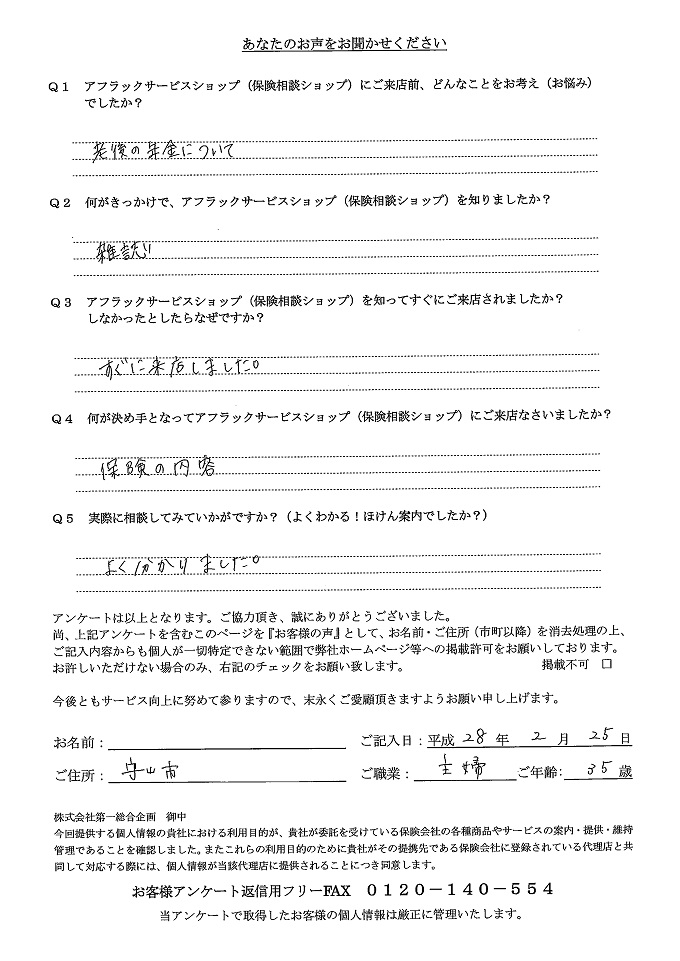 あなたのお声をお聞かせください
Q1 アフラックサービスショップ（保険相談ショップ）にご来店前、どんなことをお考え（お悩み）
でしたか？
老後の年金について
Q2 何がきっかけで、アフラックサービスショップ（保険相談ショップ）を知りましたか？
Q3 アフラックサービスショップ（保険相談ショップ）を知ってすぐにご来店されましたか？
しなかったとしたらなぜですか？
すぐに来店しました。
Q4 何が決め手となってアフラックサービスショップ（保険相談ショップ）にご来店なさいましたか？
保険の内容
Q5 実際に相談してみていかがですか？（よくわかる！ほけん案内でしたか？）
よく分かりました。
アンケートは以上となります。ご協力頂き、誠にありがとうございました。
尚、上記アンケートを含むこのページを『お客様の声』として、お名前・ご住所（市町以降）を消去処理の上、
ご記入内容からも個人が一切特定できない範囲で弊社ホームページ等への掲載許可をお願いしております。
お許しいただけない場合のみ、右記のチェックをお願い致します。 掲載不可 □
今後ともサービス向上に努めて参りますので、末永くご愛顧頂きますようお願い申し上げます。
お名前： ご記入日：平成 28 年 2 月 25 日
ご住所： 守山市 ご職業： 主婦 ご年齢： 35 歳
株式会社第一総合企画 御中
今回提供する個人情報の貴社における利用目的が、貴社が委託を受けている保険会社の各種商品やサービスの案内・提供・維持
管理であることを確認しました。またこれらの利用目的のために貴社がその提携先である保険会社に登録されている代理店と共
同して対応する際には、個人情報が当該代理店に提供されることにつき同意します。
お客様アンケート返信用フリーFAX 0120－140－554
当アンケートで取得したお客様の個人情報は厳正に管理いたします。